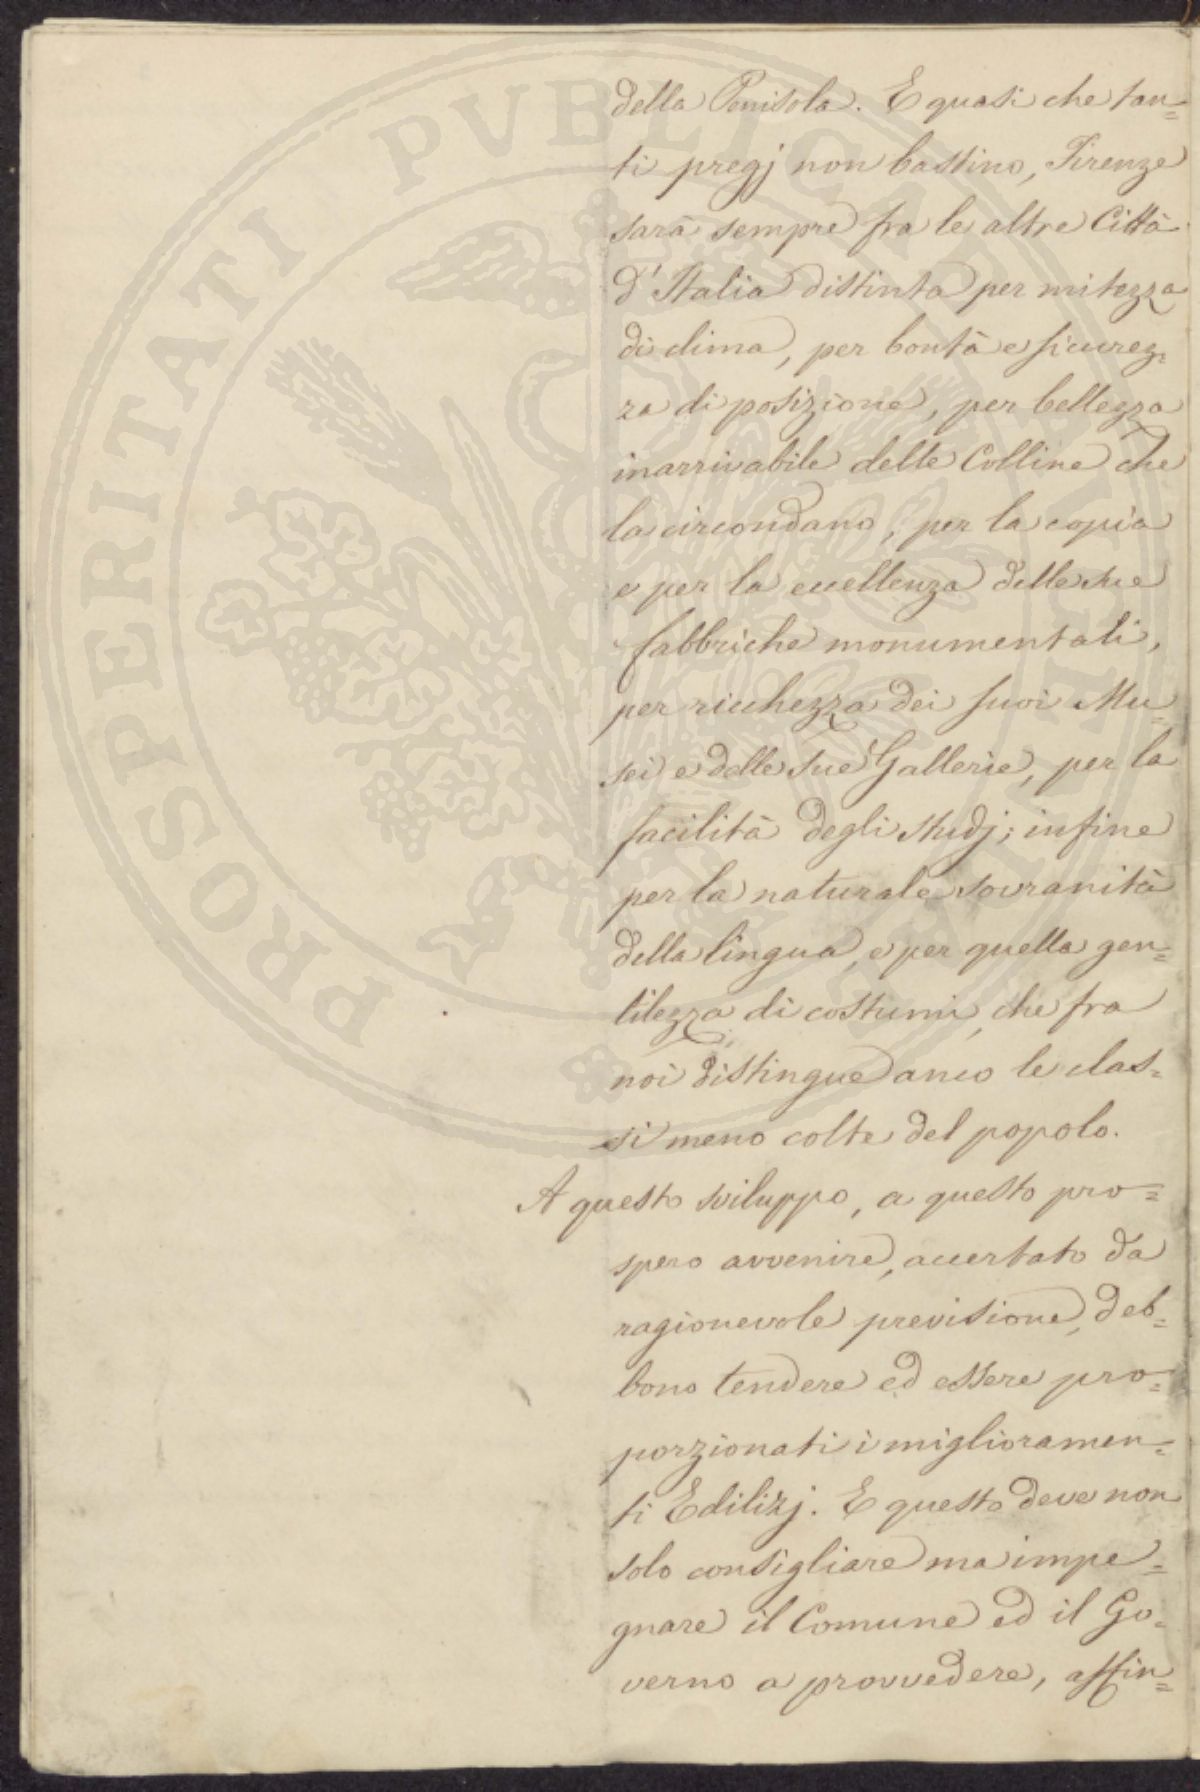 della Penisola. E quasi che tan=
ti pregj non bastino, Firenze
sarà sempre fra le altre Città
d'Italia distinta per mitezza
di clima, per bontà e sicurez=
za di posizione, per bellezza
inarrivabile delle Colline che
la circondano, per la copia
e per la eccellenza delle sue
fabbriche monumentali,
per ricchezza dei suoi Mu=
sei e delle sue Gallerie, per la
facilità degli studj; infine
per la naturale sovranità
della lingua, e per quella gen=
tilezza di costumi, che fra
noi distingue anco le clas=
si meno colte del popolo.
A questo sviluppo, a questo pro=
spero avvenire, accertato da
ragionevole previsione, deb=
bono tendere ed essere pro=
porzionati i miglioramen=
ti Edilizj. E questo deve non
solo consigliare ma impe=
gnare il Comune ed il Go=
verno a provvedere, affin=
PROSPERITATI PVBLICAE